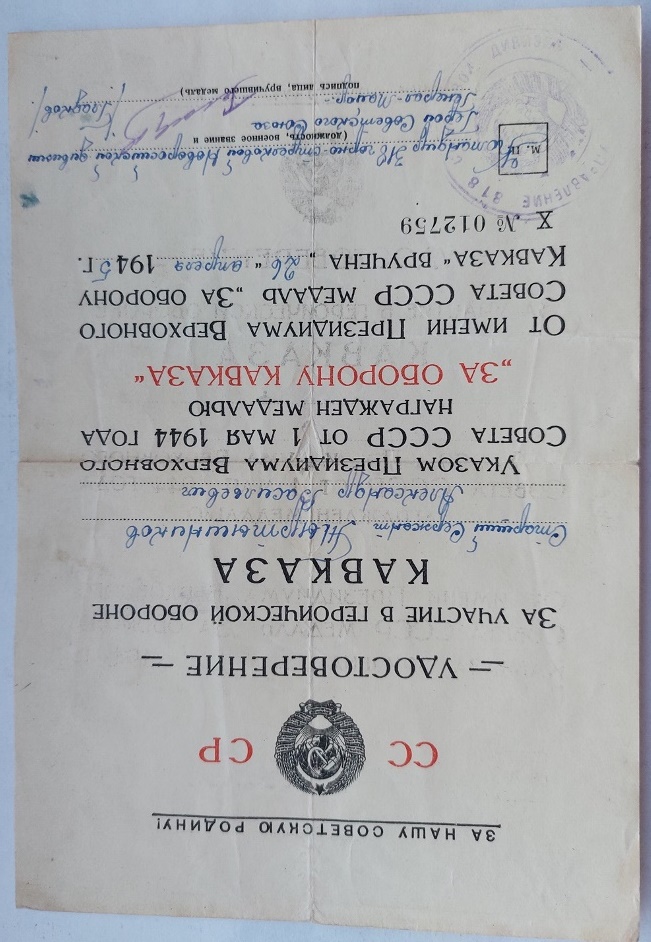 ЗА НАШУ СОВЕТСКУЮ РОДИНУ!
СС СР
— УДОСТОВЕРЕНИЕ —
ЗА УЧАСТИЕ В ГЕРОИЧЕСКОЙ ОБОРОНЕ
КАВКАЗА
Старший Сержант
Александр Васильевич
Указом Президиума Верховного
Совета СССР от 1 мая 1944 года
НАГРАЖДЕН МЕДАЛЬЮ
„ЗА ОБОРОНУ КАВКАЗА“
От имени Президиума Верховного
Совета СССР медаль „За оборону
Кавказа“ вручена „26“ апреля 1945 г.
Х № 012759
М. П.
Командир 318 горно-стрелковой Новороссийской дивизии
(должность, военное звание и
Герой Советского Союза
Генерал-Майор
подпись лица, вручившего медаль)
/Гладков/
УПРАВЛЕНИЕ 318